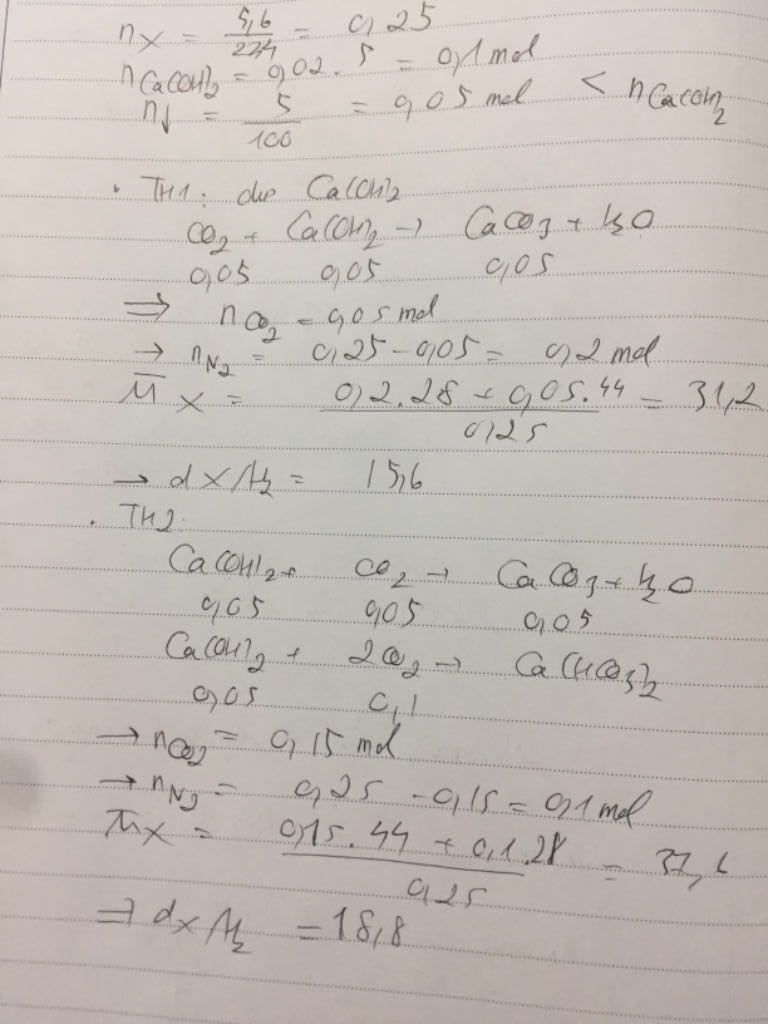 nX = 5,6/22,4 = 0,25
nCa(OH)2 = 0,02 . 5 = 0,1 mol
n↓ = 5/100 = 0,05 mol < nCa(OH)2
• TH1: dư Ca(OH)2
CO2 + Ca(OH)2 → CaCO3 + H2O
0,05 0,05 0,05
⇒ nCO2 = 0,05 mol
→ nN2 = 0,25 - 0,05 = 0,2 mol
M̅X = (0,2.28 + 0,05.44)/0,25 = 31,2
→ d X/H2 = 15,6
• TH2:
Ca(OH)2 + CO2 → CaCO3 + H2O
0,05 0,05 0,05
Ca(OH)2 + 2CO2 → Ca(HCO3)2
0,05 0,1
→ nCO2 = 0,15 mol
→ nN2 = 0,25 - 0,15 = 0,1 mol
M̅X = (0,15.44 + 0,1.28)/0,25 = 37,6
⇒ dX/H2 = 18,8